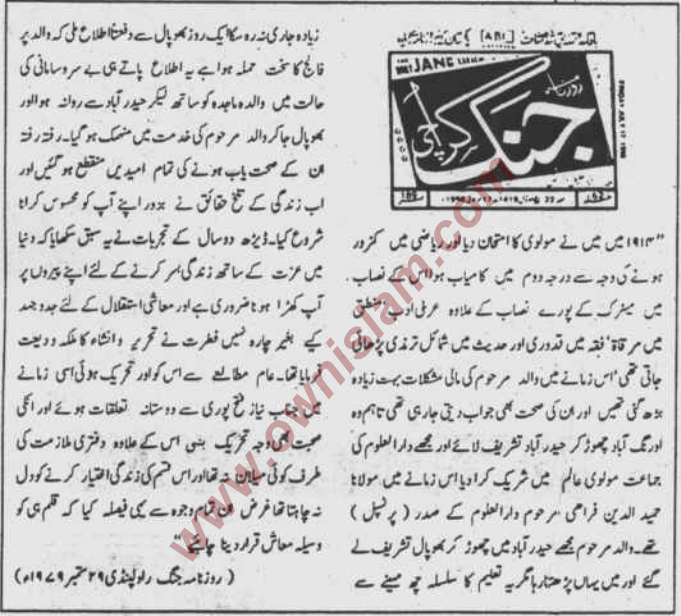 THE DAILY JANG
روزنامہ
جنگ
کراچی
FRIDAY JULY 17 1998
"۱۹۱۴ میں میں نے مولوی کا امتحان دیا اور ریاضی میں کمزور
ہونے کی وجہ سے درجہ دوم میں کامیاب ہوا اس کے نصاب
میں میٹرک کے پورے نصاب کے علاوہ عربی ادب' منطق
میں مرقاۃ' فقہ میں قدوری اور حدیث میں شمائل ترمذی پڑھائی
جاتی تھی' اس زمانے میں والد مرحوم کی مالی مشکلات بہت زیادہ
بڑھ گئی تھیں اور ان کی صحت بھی جواب دیتی جا رہی تھی تاہم وہ
اورنگ آباد چھوڑ کر حیدر آباد تشریف لائے اور مجھے دارالعلوم کی
جماعت مولوی عالم میں شریک کرا دیا اس زمانے میں مولانا
حمید الدین فراہی مرحوم دارالعلوم کے صدر ( پرنسپل )
تھے۔ والد مرحوم مجھے حیدر آباد میں چھوڑ کر بھوپال تشریف لے
گئے اور میں یہاں پڑھتا رہا مگر یہ تعلیم کا سلسلہ چھ مہینے سے
زیادہ جاری نہ رہ سکا ایک روز بھوپال سے دفعتاً اطلاع ملی کہ والد پر
فالج کا سخت حملہ ہوا ہے یہ اطلاع پاتے ہی بے سروسامانی کی
حالت میں والدہ ماجدہ کو ساتھ لیکر حیدر آباد سے روانہ ہوا اور
بھوپال جا کر والد مرحوم کی خدمت میں منہمک ہو گیا۔ رفتہ رفتہ
ان کے صحت یاب ہونے کی تمام امیدیں منقطع ہو گئیں اور
اب زندگی کے تلخ حقائق نے بزور اپنے آپ کو محسوس کرانا
شروع کیا۔ ڈیڑھ دو سال کے تجربات نے یہ سبق سکھایا کہ دنیا
میں عزت کے ساتھ زندگی بسر کرنے کے لئے اپنے پیروں پر
آپ کھڑا ہونا ضروری ہے اور معاشی استقلال کے لئے جدوجہد
کیے بغیر چارہ نہیں فطرت نے تحریر و انشاء کا ملکہ ودیعت
فرمایا تھا۔ عام مطالعے سے اس کو اور تحریک ہوئی اسی زمانے
میں جناب نیاز فتح پوری سے دوستانہ تعلقات ہوئے اور انکی
صحبت بھی وجہ تحریک بنی اس کے علاوہ دفتری ملازمت کی
طرف کوئی میلان نہ تھا اور اس قسم کی زندگی اختیار کرنے کو دل
نہ چاہتا تھا غرض ان تمام وجوہ سے یہی فیصلہ کیا کہ قلم ہی کو
وسیلہ معاش قرار دینا چاہئے"
( روزنامہ جنگ راولپنڈی ۲۹ ستمبر ۱۹۷۹ء )
www.ownislam.com